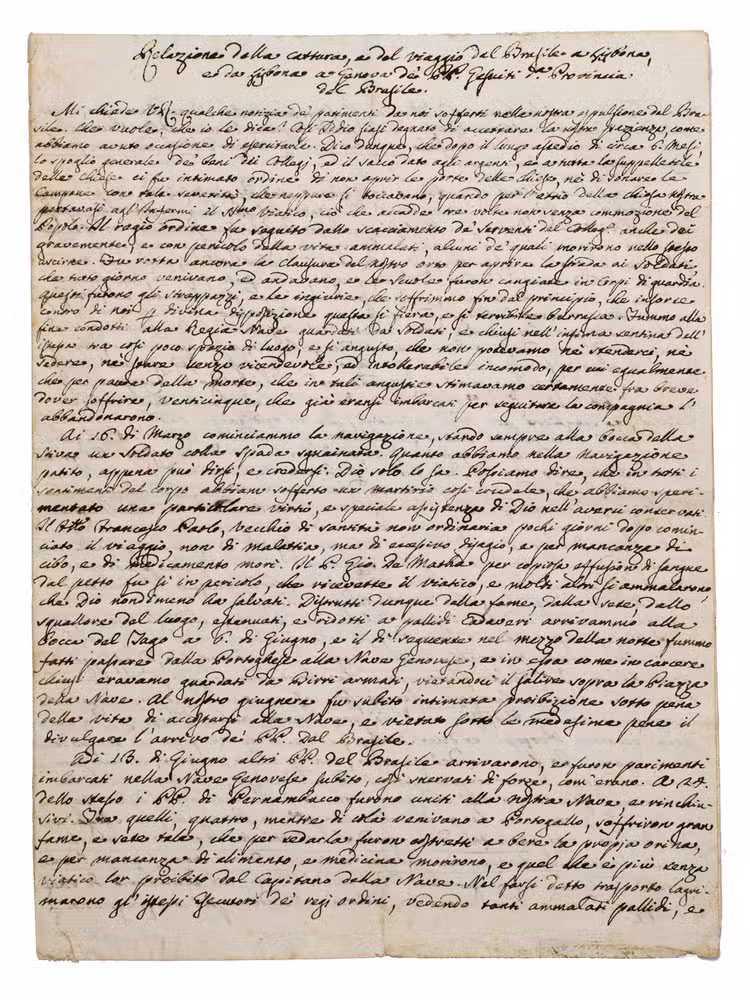 Relazione della cattura, e del viaggio dal Brasile a Lisbona,
e da Lisbona a Genova de' PP. Gesuiti d.a Provincia
del Brasile.
Mi chiede V.R. qualche notizia de' patimenti da noi sofferti nella nostra espulsione dal Bra-
sile. Che vuole, che io le dica? Così Iddio siasi degnato di accettare la nostra pazienza, come
abbiamo avuto occasione di esercitarla. Dico dunque, che dopo il lungo assedio di circa 6. Mesi,
lo spoglio generale dei beni dei Collegj, ed il sacco dato agli argenti, ed a tutta la suppellettile
delle chiese ci fu intimato ordine di non aprir le porte delle chiese, nè di sonare le
Campane con tale severità, che neppure si toccavano, quando per l'atrio della chiesa nostra
portavasi agl'Infermi il SS.mo Viatico, ciò che accadde tre volte non senza commozione del
Popolo. Il regio ordine fu seguito dallo scacciamento de' Serventi del Colleg. anche dei
gravemente, e con pericolo della vita ammalati, alcuni de' quali morirono nello stesso
uscire. Fu rotta ancora la Clausura del nostro orto per aprire la strada ai Soldati,
che tutto giorno venivano, ed andavano, e le Scuole furon cangiate in Corpi di guardia.
Questi furono gli strappazzi, e le ingiurie, che soffrimmo fin dal principio, che insorse
contro di noi p divina disposizione questa sì fiera, e sì terribile burrasca. Fummo alla
fine condotti alla Regia Nave guardati da Soldati, e chiusi nell'infima sentina dell'
istessa tra così poco spazio di luogo, e sì angusto, che non potevamo nè stenderci, nè
sedere, nè stare senza vicendevole, ed intollerabile incomodo, per cui egualmente
che per paura della morte, che in tali angustie stimavamo certamente fra breve
dover soffrire, venticinque, che già eransi imbarcati per seguitare la compagnia l'
abbandonarono.
Ai 16. di Marzo cominciammo la navigazione, stando sempre alla bocca della
Stiva un Soldato colla spada sguainata. Quanto abbiamo nella navigazione
patito, appena può dirsi, e credersi. Dio solo lo sa. Possiamo dire, che in tutti i
sentimenti del corpo abbiam sofferto un martirio così crudele, che abbiamo speri-
mentato una particolare virtù, e speciale assistenza di Dio nell'averci conservati.
Il Francesco Paolo, vecchio di santità non ordinaria pochi giorni dopo comin-
ciato il viaggio, non di malattia, ma di eccessivo disagio, e per mancanza di
cibo, e di medicamento morì. Il P. Gio. De Matha per copiosa effusione di sangue
dal petto fu sì in pericolo, che ricevette il viatico, e molti altri si ammalarono,
che Dio nondimeno ha salvati. Distrutti dunque dalla fame, dalla sete, dallo
squallore del luogo, estenuati, e ridotti a pallidi Cadaveri arrivammo alla
Bocca del Tago a 6. di Giugno, e il dì seguente nel mezzo della notte fummo
fatti passare dalla Portoghese alla Nave Genovese, e in essa come in carcere
chiusi eravamo guardati da Birri armati, vietandoci il salire sopra la Piazza
della Nave. Al nostro giugnere fu subito intimata proibizione sotto pena
della vita di accostarsi alla Nave, e vietato sotto le medesime pene il
divulgare l'arrivo de' PP. dal Brasile.
Ai 13. di Giugno altri PP. del Brasile arrivarono, e furon parimenti
imbarcati nella Nave Genovese subito, così snervati di forze, com'erano. A 24.
dello stesso i PP. di Pernambucco furono uniti alla nostra Nave, e rinchiu-
sivi. Tra quelli, quattro, mentre di colà venivano a Portogallo, soffriron gran
fame, e sete tale, che per sedarla furon costretti a bere la propria orina,
e per mancanza di alimento, e medicina morirono, e quel che è più senza
viatico lor proibito dal Capitano della Nave. Nel farsi detto trasporto lagri-
marono gl'istessi Esecutori dei regj ordini, vedendo tanti ammalati pallidi, e